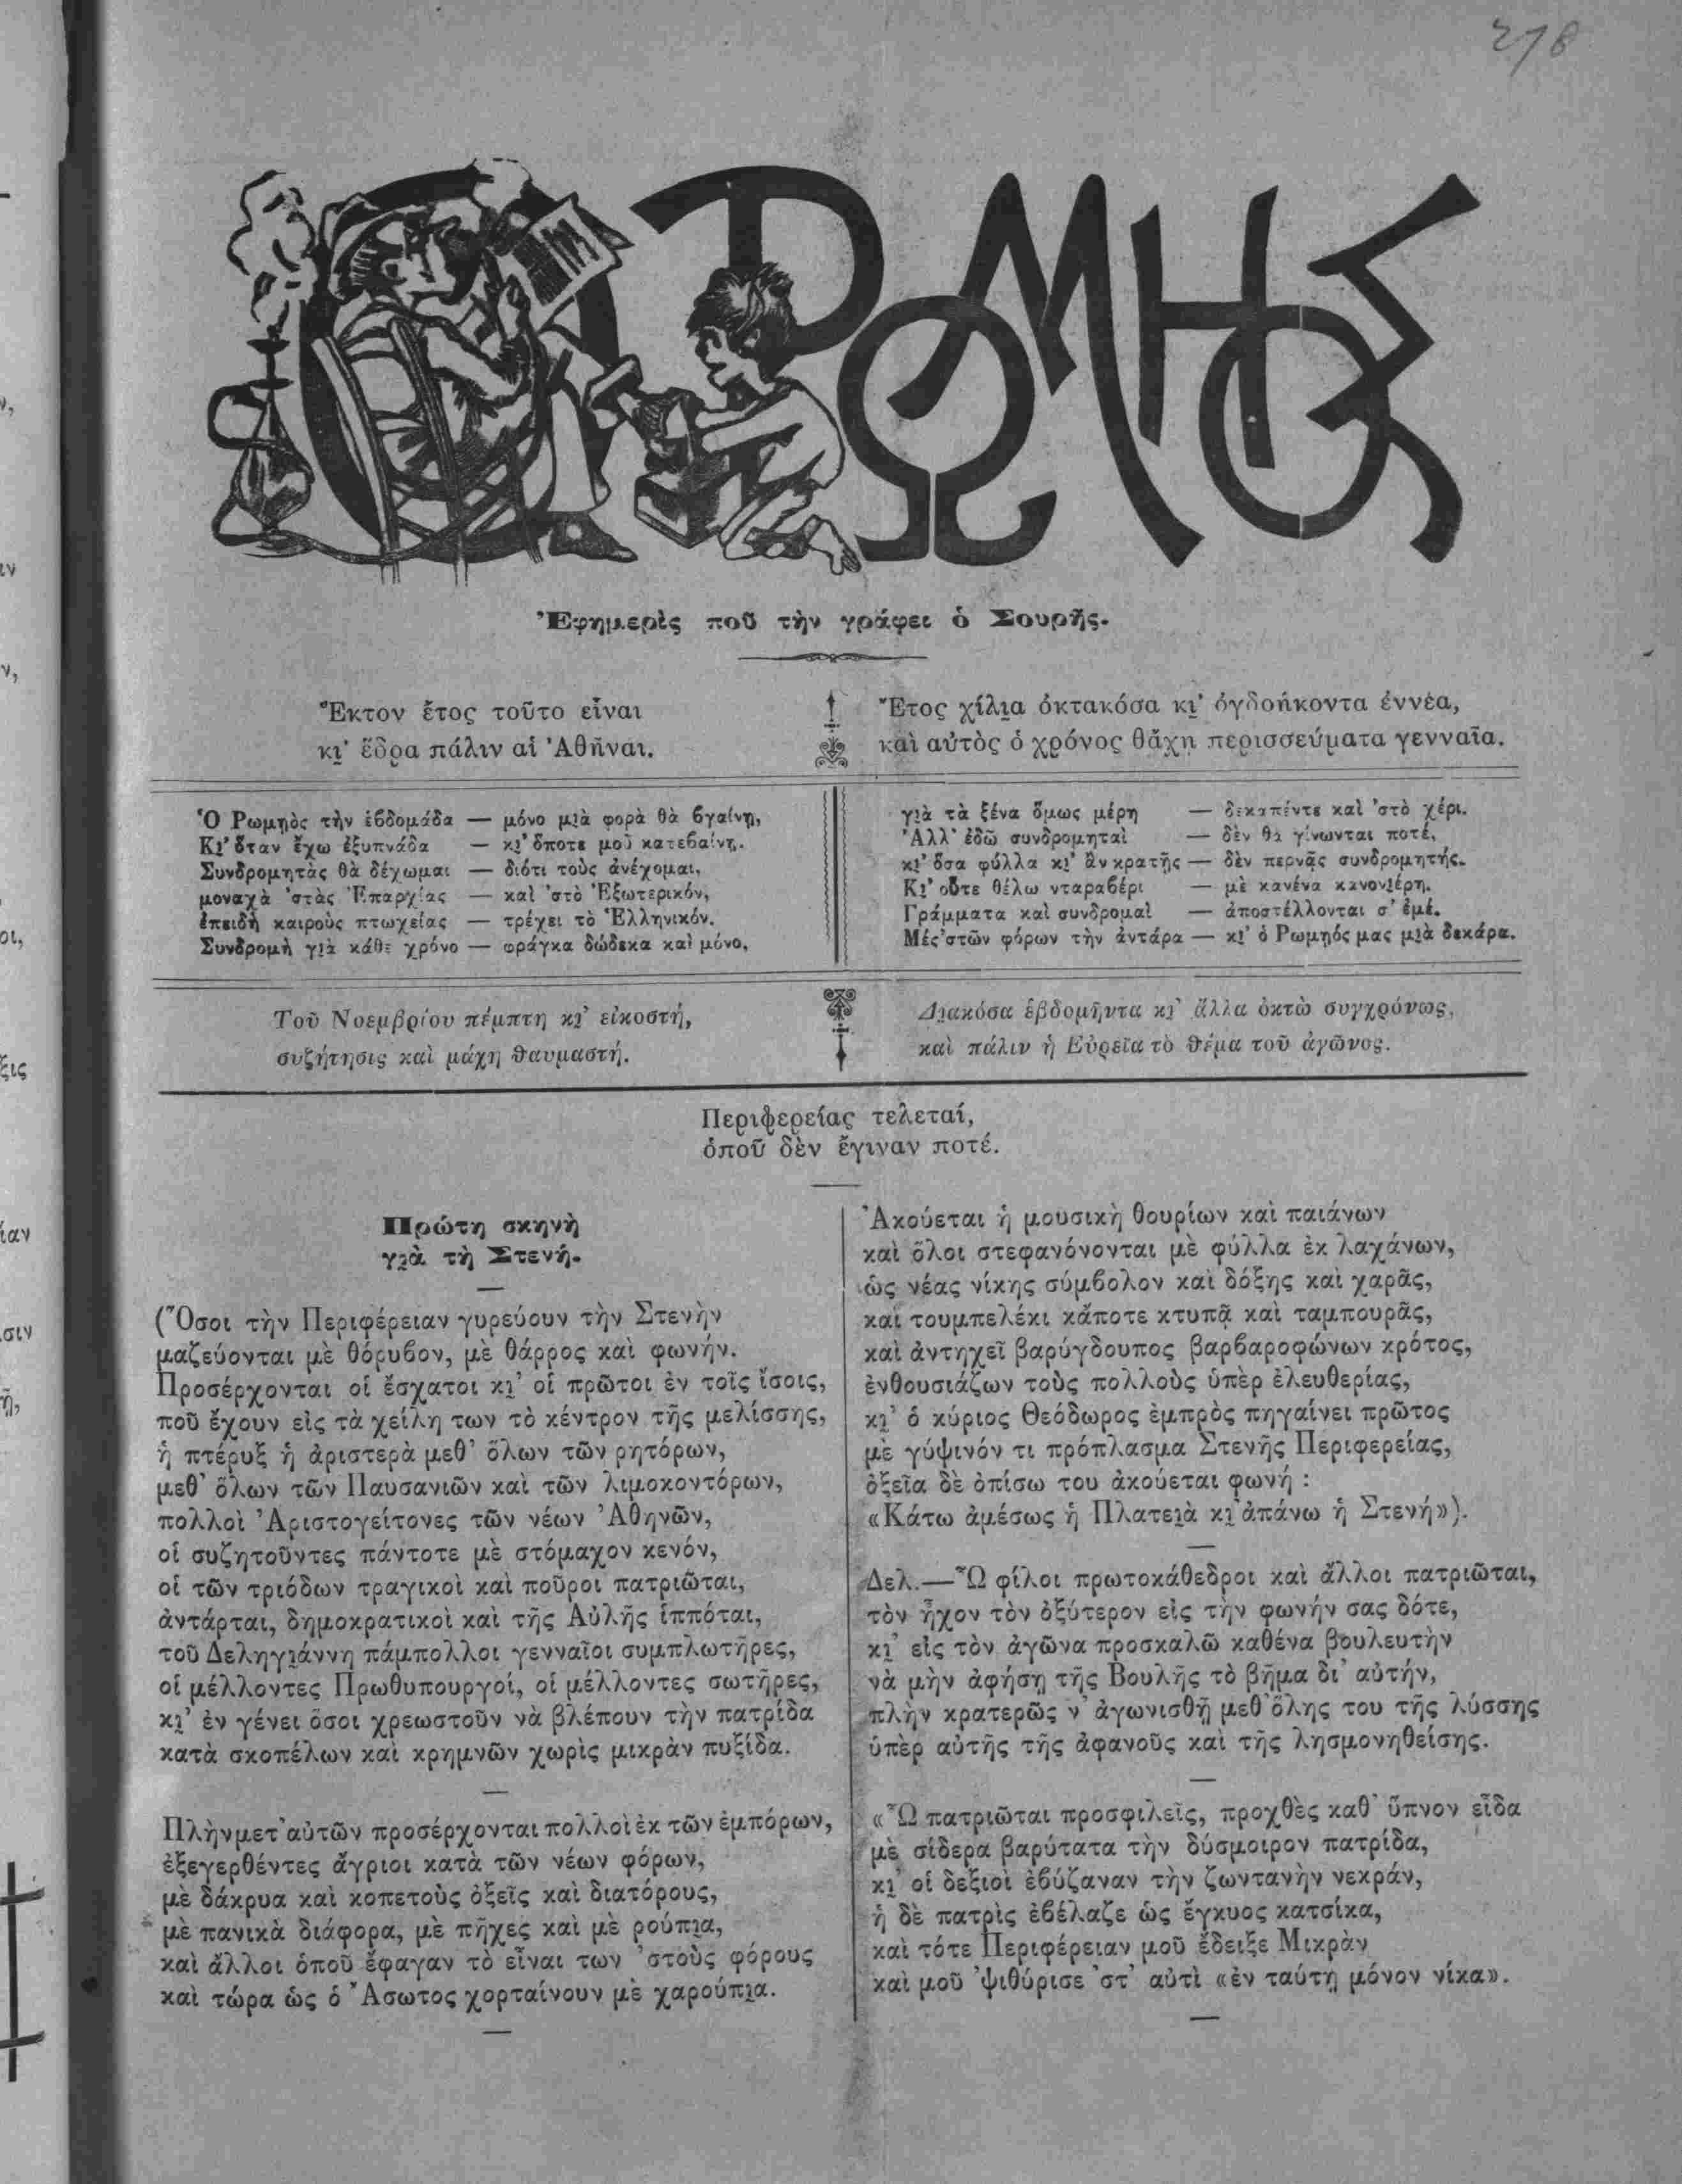 278
Ο ΡΩΜΗΟΣ
Ἐφημερὶς ποῦ τὴν γράφει ὁ Σουρῆς.
Ἕκτον ἔτος τοῦτο εἶναι
κι̯' ἕδρα πάλιν αἱ Ἀθῆναι.
Ἔτος χίλι̯α ὀκτακόσα κι̯' ὀγδοήκοντα ἐννέα,
καὶ αὐτὸς ὁ χρόνος θἄχῃ περισσεύματα γενναῖα.
Ὁ Ρωμῃὸς τὴν ἑβδομάδα — μόνο μι̯ὰ φορὰ θὰ βγαίνῃ,
Κι̯' ὅταν ἔχω ἐξυπνάδα — κι̯' ὅποτε μοῦ κατεβαίνῃ.
Συνδρομητὰς θὰ δέχωμαι — διότι τοὺς ἀνέχομαι,
μοναχὰ 'στὰς Ἐπαρχίας — καὶ 'στὸ Ἐξωτερικόν,
ἐπειδὴ καιροὺς πτωχείας — τρέχει τὸ Ἑλληνικόν.
Συνδρομὴ γι̯ὰ κάθε χρόνο — φράγκα δώδεκα καὶ μόνο,
γι̯ὰ τὰ ξένα ὅμως μέρη — δεκαπέντε καὶ 'στὸ χέρι.
Ἀλλ' ἐδῶ συνδρομηταὶ — δὲν θὰ γίνωνται ποτέ,
κι̯' ὅσα φύλλα κι̯' ἂν κρατῇς — δὲν περνᾷς συνδρομητής.
Κι̯' οὔτε θέλω νταραβέρι — μὲ κανένα κανονι̯έρη.
Γράμματα καὶ συνδρομαὶ — ἀποστέλλονται σ' ἐμέ.
Μές 'στῶν φόρων τὴν ἀντάρα — κι̯' ὁ Ρωμῃός μας μι̯ὰ δεκάρα.
Τοῦ Νοεμβρίου πέμπτη κι̯' εἰκοστή,
συζήτησις καὶ μάχη θαυμαστή.
Δι̯ακόσα ἑβδομῆντα κι̯' ἄλλα ὀκτὼ συγχρόνως,
καὶ πάλιν ἡ Εὐρεῖα τὸ θέμα τοῦ ἀγῶνος.
Περιφερείας τελεταί,
ὁποῦ δὲν ἔγιναν ποτέ.
Πρώτη σκηνὴ
γι̯ὰ τὴ Στενή.
(Ὅσοι τὴν Περιφέρειαν γυρεύουν τὴν Στενὴν
μαζεύονται μὲ θόρυβον, μὲ θάρρος καὶ φωνήν.
Προσέρχονται οἱ ἔσχατοι κι̯' οἱ πρῶτοι ἐν τοῖς ἴσοις,
ποῦ ἔχουν εἰς τὰ χείλη των τὸ κέντρον τῆς μελίσσης,
ἡ πτέρυξ ἡ ἀριστερὰ μεθ' ὅλων τῶν ρητόρων,
μεθ' ὅλων τῶν Παυσανιῶν καὶ τῶν λιμοκοντόρων,
πολλοὶ Ἀριστογείτονες τῶν νέων Ἀθηνῶν,
οἱ συζητοῦντες πάντοτε μὲ στόμαχον κενόν,
οἱ τῶν τριόδων τραγικοὶ καὶ ποῦροι πατριῶται,
ἀντάρται, δημοκρατικοὶ καὶ τῆς Αὐλῆς ἱππόται,
τοῦ Δεληγι̯άννη πάμπολλοι γενναῖοι συμπλωτῆρες,
οἱ μέλλοντες Πρωθυπουργοί, οἱ μέλλοντες σωτῆρες,
κι̯' ἐν γένει ὅσοι χρεωστοῦν νὰ βλέπουν τὴν πατρίδα
κατὰ σκοπέλων καὶ κρημνῶν χωρὶς μικρὰν πυξίδα.
Πλὴν μετ' αὐτῶν προσέρχονται πολλοὶ ἐκ τῶν ἐμπόρων,
ἐξεγερθέντες ἄγριοι κατὰ τῶν νέων φόρων,
μὲ δάκρυα καὶ κοπετοὺς ὀξεῖς καὶ διατόρους,
μὲ πανικὰ διάφορα, μὲ πῆχες καὶ μὲ ρούπι̯α,
καὶ ἄλλοι ὁποῦ ἔφαγαν τὸ εἶναι των 'στοὺς φόρους
καὶ τώρα ὡς ὁ Ἄσωτος χορταίνουν μὲ χαρούπι̯α.
Ἀκούεται ἡ μουσικὴ θουρίων καὶ παιάνων
καὶ ὅλοι στεφανόνονται μὲ φύλλα ἐκ λαχάνων,
ὡς νέας νίκης σύμβολον καὶ δόξης καὶ χαρᾶς,
καὶ τουμπελέκι κἄποτε κτυπᾷ καὶ ταμπουρᾶς,
καὶ ἀντηχεῖ βαρύγδουπος βαρβαροφώνων κρότος,
ἐνθουσιάζων τοὺς πολλοὺς ὑπὲρ ἐλευθερίας,
κι̯' ὁ κύριος Θεόδωρος ἐμπρὸς πηγαίνει πρῶτος
μὲ γύψινόν τι πρόπλασμα Στενῆς Περιφερείας,
ὀξεῖα δὲ ὀπίσω του ἀκούεται φωνή :
«Κάτω ἀμέσως ἡ Πλατει̯ὰ κι̯' ἀπάνω ἡ Στενή»).
Δελ.—Ὦ φίλοι πρωτοκάθεδροι καὶ ἄλλοι πατριῶται,
τὸν ἦχον τὸν ὀξύτερον εἰς τὴν φωνήν σας δότε,
κι̯' εἰς τὸν ἀγῶνα προσκαλῶ καθένα βουλευτὴν
νὰ μὴν ἀφήσῃ τῆς Βουλῆς τὸ βῆμα δι' αὐτήν,
πλὴν κρατερῶς ν' ἀγωνισθῇ μεθ' ὅλης του τῆς λύσσης
ὑπὲρ αὐτῆς τῆς ἀφανοῦς καὶ τῆς λησμονηθείσης.
«Ὦ πατριῶται προσφιλεῖς, προχθὲς καθ' ὕπνον εἶδα
μὲ σίδερα βαρύτατα τὴν δύσμοιρον πατρίδα,
κι̯' οἱ δεξιοὶ ἐβύζαναν τὴν ζωντανὴν νεκράν,
ἡ δὲ πατρὶς ἐβέλαζε ὡς ἔγκυος κατσίκα,
καὶ τότε Περιφέρειαν μοῦ ἔδειξε Μικρὰν
καὶ μοῦ 'ψιθύρισε 'στ' αὐτὶ «ἐν ταύτῃ μόνον νίκα».